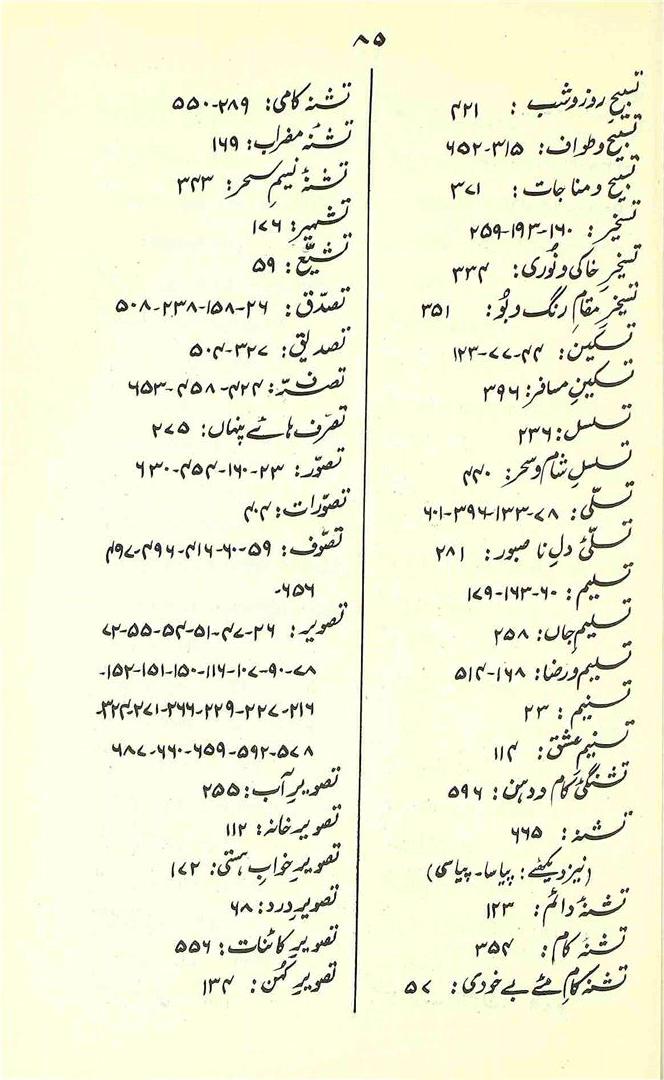 ۸۵
تسبیحِ روز و شب : ۴۲۱
تسبیح و طواف : ۳۱۵-۶۵۲
تسبیح و مناجات : ۳۷۱
تسخیر : ۱۶۰-۱۹۳-۲۵۹
تسخیرِ خاکی و نُوری : ۳۳۴
تسخیرِ مقامِ رنگ و بُو : ۳۵۱
تسکین : ۴۴-۷۷-۱۲۳
تسکینِ مسافر : ۳۹۶
تسلسل : ۲۳۶
تسلسلِ شام و سحر : ۴۴۰
تسلّی : ۷۸-۱۳۳-۳۹۶-۶۰۱
تسلّئ دلِ نا صبور : ۲۸۱
تسلیم : ۶۰-۱۶۳-۱۷۹
تسلیمِ جاں : ۲۵۸
تسلیم و رضا : ۱۶۸-۵۱۴
تسنیم : ۲۳
تسنیمِ عشق : ۱۱۴
تشنگئ کام و دہن : ۵۹۶
تشنہ : ۶۶۵
(نیز دیکھئے : پیاسا۔ پیاسی)
تشنۂ دائم : ۱۲۳
تشنہ کام : ۳۵۴
تشنہ کامِ مئے بے خودی : ۵۷
تشنہ کامی : ۲۸۹-۵۵۰
تشنۂ مضراب : ۱۶۹
تشنۂ نسیمِ سحر : ۳۴۳
تشہیر : ۱۷۶
تشیّع : ۵۹
تصدّق : ۲۶-۱۵۸-۲۳۸-۵۰۸
تصدیق : ۳۲۷-۵۰۴
تصرّف : ۴۲۴-۴۵۸-۶۵۳
تصرّف ہائے پنہاں : ۲۷۵
تصوّر : ۲۳-۱۶۰-۴۵۴-۶۳۰
تصوّرات : ۴۰۴
تصوّف : ۵۹-۶۰-۴۱۶-۴۹۶-۴۹۷
-۶۵۶
تصویر : ۲۶-۴۷-۵۱-۵۴-۵۵-۷۲
۷۸-۹۰-۱۰۷-۱۱۶-۱۵۰-۱۵۱-۱۵۲-
۲۱۶-۲۲۷-۲۲۹-۲۶۶-۲۷۱-۳۲۴-
۵۷۸-۵۹۲-۶۵۹-۶۶۰-۶۸۷
تصویرِ آب : ۲۵۵
تصویر خانہ : ۱۱۲
تصویرِ خوابِ ہستی : ۱۷۲
تصویرِ درد : ۶۸
تصویرِ کائنات : ۵۵۶
تصویرِ کُہن : ۱۳۴